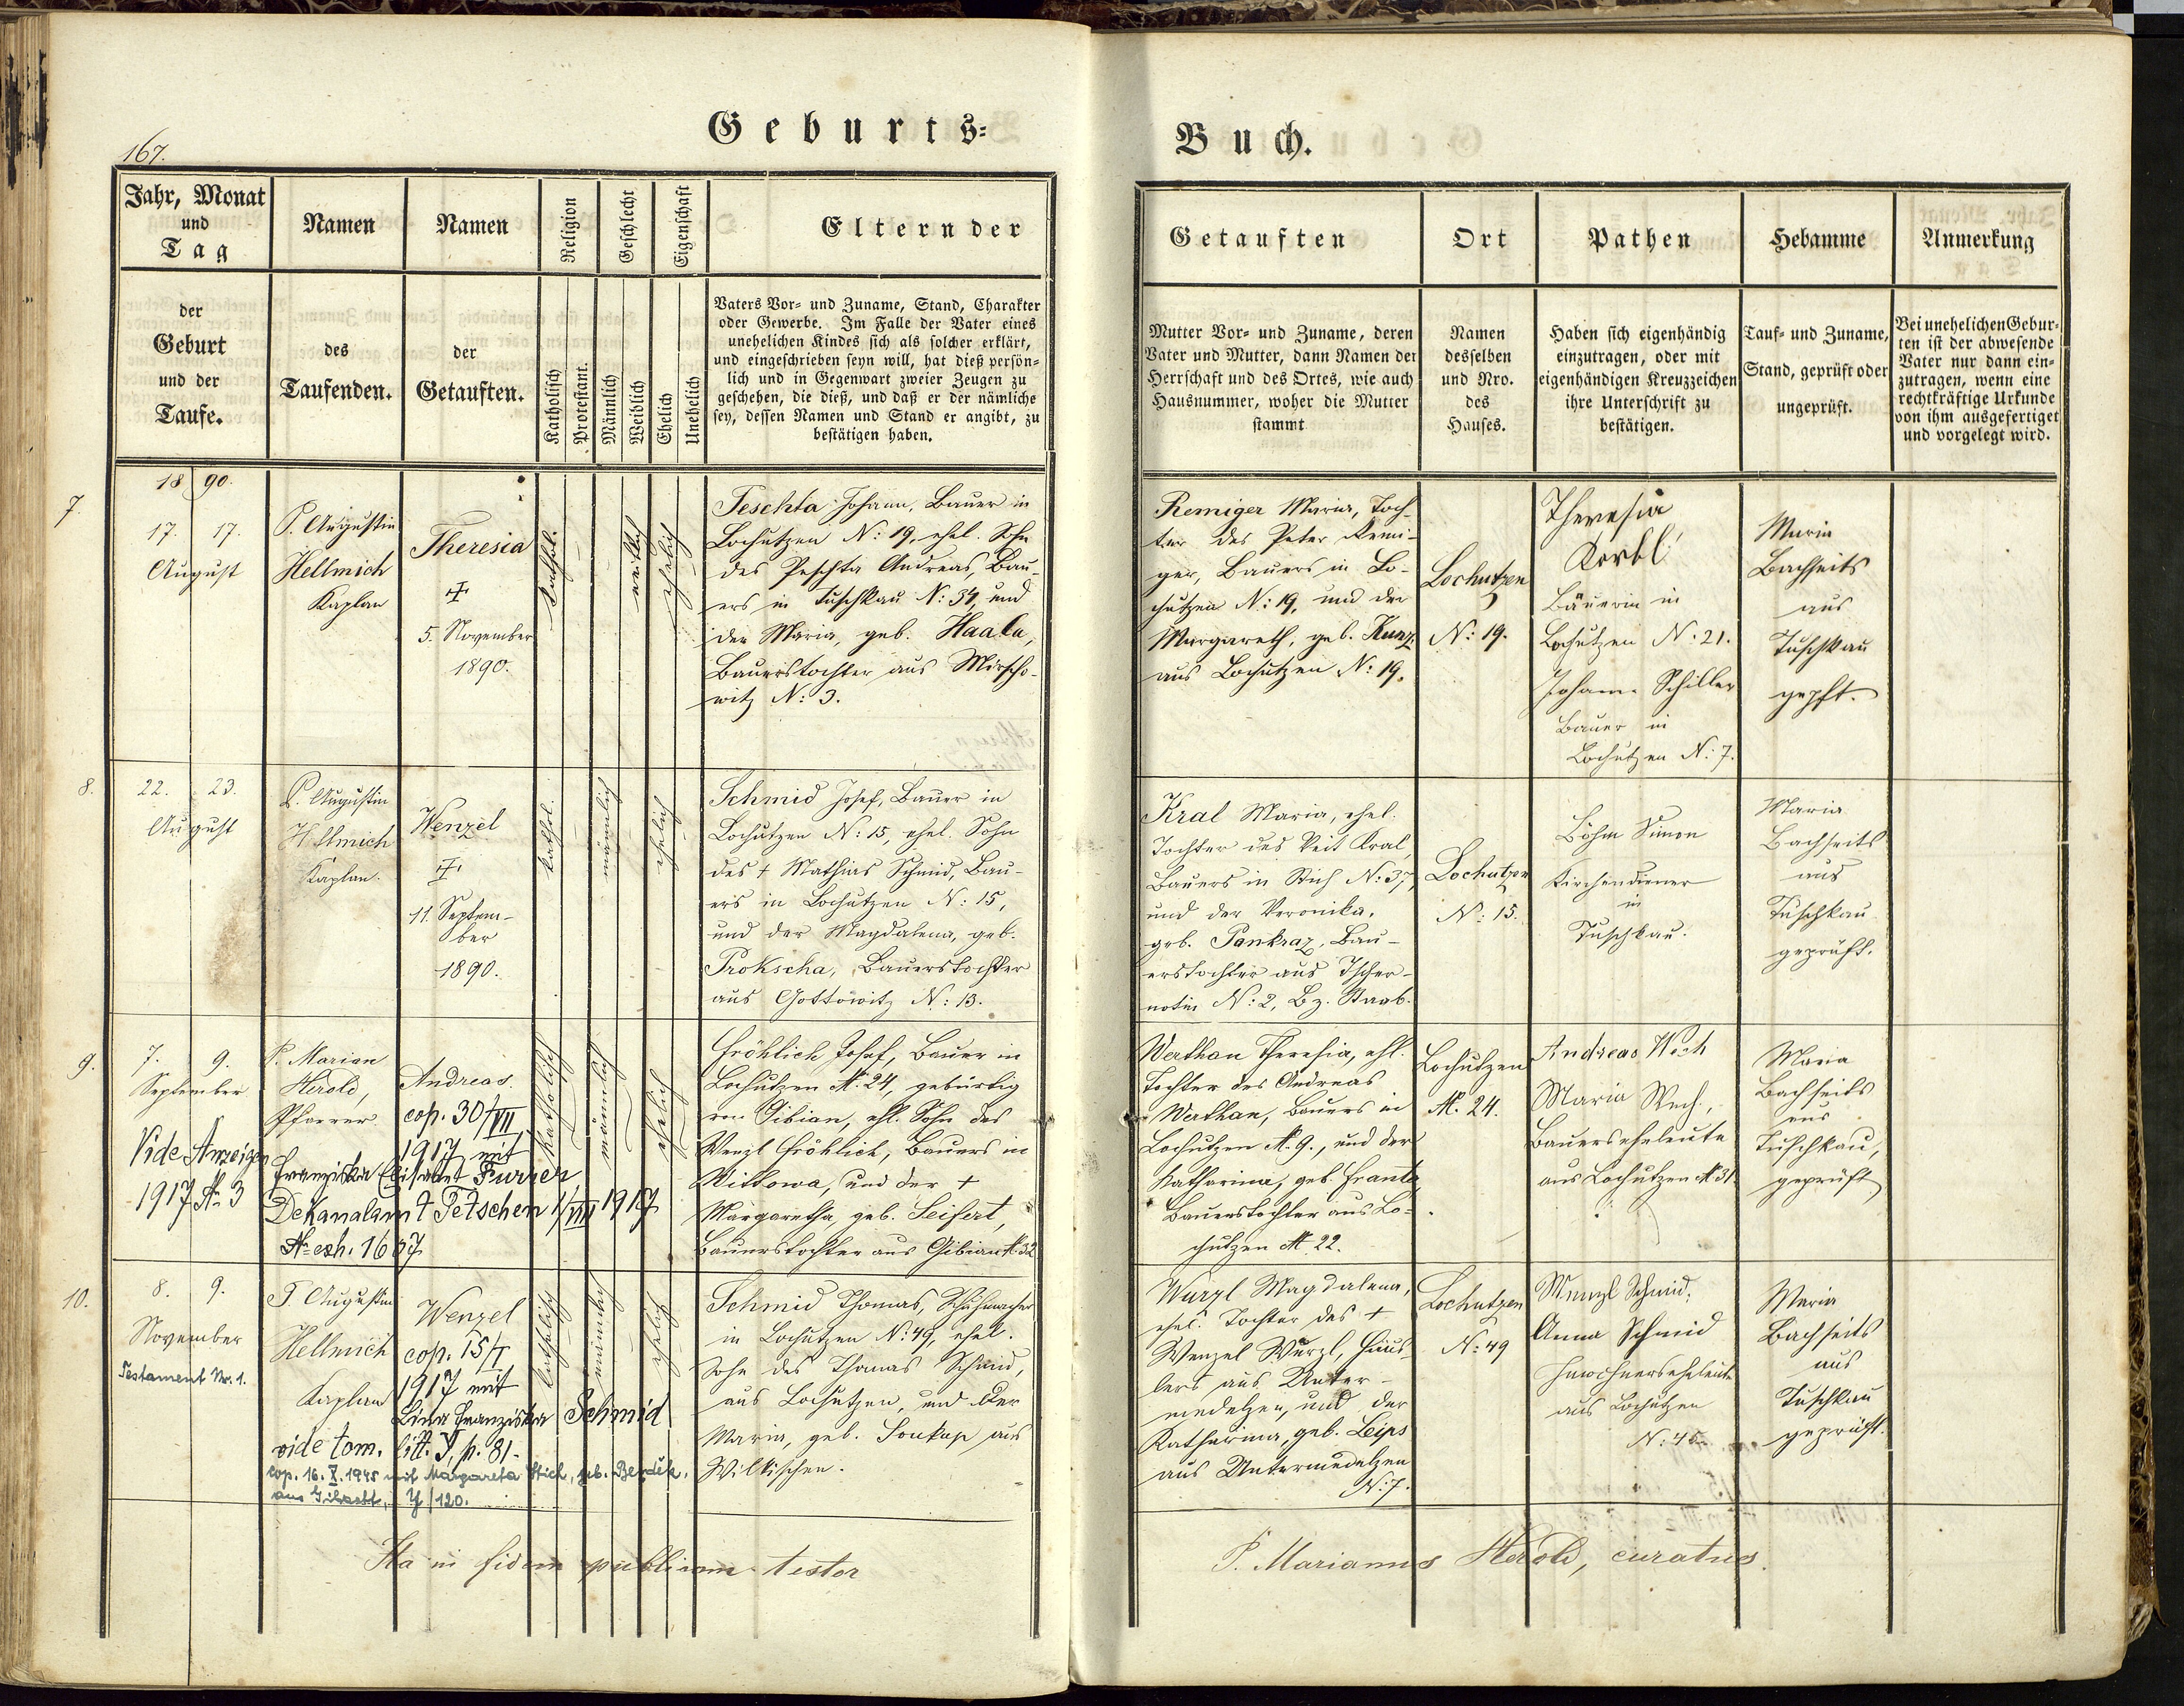 167.
Geburts-
Buch.
Jahr, Monat
und
Tag
der
Geburt
und der
Taufe.
Namen
des
Taufenden.
Namen
der
Getauften.
Religion
Katholisch
Protestant.
Geschlecht
Männlich
Weiblich
Eigenschaft
Ehelich
Unehelich
Eltern der
Vaters Vor- und Zuname, Stand, Charakter
oder Gewerbe. Im Falle der Vater eines
unehelichen Kindes sich als solcher erklärt,
und eingeschrieben seyn will, hat dieß persön-
lich und in Gegenwart zweier Zeugen zu
geschehen, die dieß, und daß er der nämliche
sey, dessen Namen und Stand er angibt, zu
bestätigen haben.
Getauften
Mutter Vor- und Zuname, deren
Vater und Mutter, dann Namen der
Herrschaft und des Ortes, wie auch
Hausnummer, woher die Mutter
stammt
Ort
Namen
desselben
und Nro.
des
Hauses.
Pathen
Haben sich eigenhändig
einzutragen, oder mit
eigenhändigen Kreuzzeichen
ihre Unterschrift zu
bestätigen.
Hebamme
Tauf- und Zuname,
Stand, geprüft oder
ungeprüft.
Anmerkung
Bei unehelichen Gebur-
ten ist der abwesende
Vater nur dann ein-
zutragen, wenn eine
rechtkräftige Urkunde
von ihm ausgefertiget
und vorgelegt wird.
1890.
7.
17. 17.
August
P. Augustin
Hellmich
Kaplan
Theresia
5. November
1890.
kathol.
weiblich
ehelich
Peschta Johann, Bauer in
Lochutzen N: 19, ehel. Sohn
des Peschta Andreas, Bau-
ers in Tuschkau N: 34, und
der Maria, geb. Haala,
Bauerstochter aus Mirscho-
witz N: 3.
Remiger Maria, Toch-
ter des Peter Remi-
ger, Bauers in Lo-
chutzen N: 19, und der
Margareth, geb. Kunz
aus Lochutzen N: 19.
Lochutzen
N: 19.
Theresia
Korbl
Bäuerin in
Lochutzen N. 21.
Johann Schiller
Bauer in
Lochutzen N: 7.
Maria
Bachseits
aus
Tuschkau
gepft.
8.
22. 23.
August
P. Augustin
Hellmich
Kaplan.
Wenzel
11. Septem-
ber
1890.
kathol.
männlich
ehelich
Schmid Josef, Bauer in
Lochutzen N: 15, ehel. Sohn
des + Mathias Schmid, Bau-
ers in Lochutzen N: 15,
und der Magdalena, geb.
Prokscha, Bauerstochter
aus Gottowitz N: 13.
Kral Maria, ehel.
Tochter des Veit Kral,
Bauers in Stich N: 37,
und der Veronika,
geb. Pankraz, Bau-
erstochter aus Tscher-
notin N: 2, Bz. Staab.
Lochutzen
N: 15.
Böhm Simon
Kirchendiener
in
Tuschkau.
Maria
Bachseits
aus
Tuschkau
geprüft.
9.
7. 9.
September
Vide Anzeigen
1917 No 3
P. Marian
Herold,
Pfarrer
Andreas.
cop. 30/VII
1917 mit
Franziska Elisabet Furrer,
Dekanalamt Petschen 1/VIII 1917
No exh. 1667
katholisch
männlich
ehelich
Fröhlich Josef, Bauer in
Lochutzen N. 24, gebürtig
von Gibian, ehl. Sohn des
Wenzl Fröhlich, Bauers in
Wittowa, und der +
Margaretha, geb. Seifert,
Bauerstochter aus Gibian N. 32
Werthan Theresia, ehl.
Tochter des Andreas
Werthan, Bauers in
Lochutzen N. 9., und der
Katharina, geb. Franta,
Bauerstochter aus Lo-
chutzen N. 22.
Lochutzen
N. 24.
Andreas Wech
Maria Wech,
Bauerseheleute
aus Lochutzen N. 31
Maria
Bachseits
aus
Tuschkau,
geprüft
10.
8. 9.
November
Testament Nr. 1.
P. Augustin
Hellmich
Kaplan
Wenzel
cop. 15/I
1917 mit
Lina Franziska Schmid
vide tom. litt. Y, p. 81.
cop. 16. X. 1945 mit Margareta Stich, geb.
Y/120.
katholisch
männlich
ehelich
Schmid Thomas, Schuhmacher
in Lochutzen N: 49, ehel.
Sohn des Thomas Schmid,
aus Lochutzen, und der
Maria, geb. Soukup aus
Wilkischen.
Wurzl Magdalena,
ehel. Tochter des +
Wenzel Wurzl, Häus-
lers aus Unter-
medelzen, und der
Katharina, geb. Leips
aus Untermedelzen
N: 7.
Lochutzen
N: 49
Wenzl Schmid,
Anna Schmid
Inwohnerseheleute
aus Lochutzen
N: 45.
Maria
Bachseits
aus
Tuschkau
geprüft.
Ita in fidem publicam testor
P. Marianus Herold, curatus.